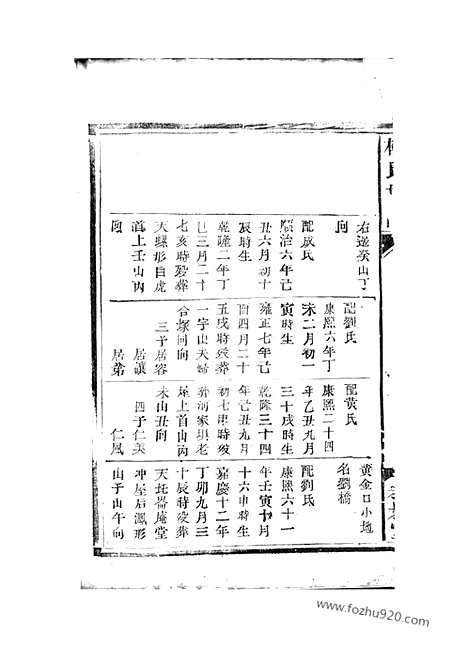 右邊癸山丁
向
配成氏
順治六年己
丑六月初十
辰時生
乾隆二年丁
巳三月二十
七亥時歿葬
天螺形白虎
嘴上壬山丙
向
配劉氏
康熙六年丁
未二月初一
寅時生
雍正七年己
酉四月二十
五戌時歿葬
一字山夫婦
合塚同向
三子居容
居讓
居第
配黃氏
康熙二十四
年乙丑九月
三十戌時生
乾隆三十四
年己丑九月
初七申時歿
葬河家壩老
屋上首山丙
未山丑向
四子仁美
仁鳳
黃金口小地
名劉橋
配劉氏
康熙六十一
年壬寅十月
十六申時生
嘉慶十二年
丁卯九月三
十辰時歿葬
天坑崙庵堂
冲屋后鳳形
山子山午向
www.fozhu920.com